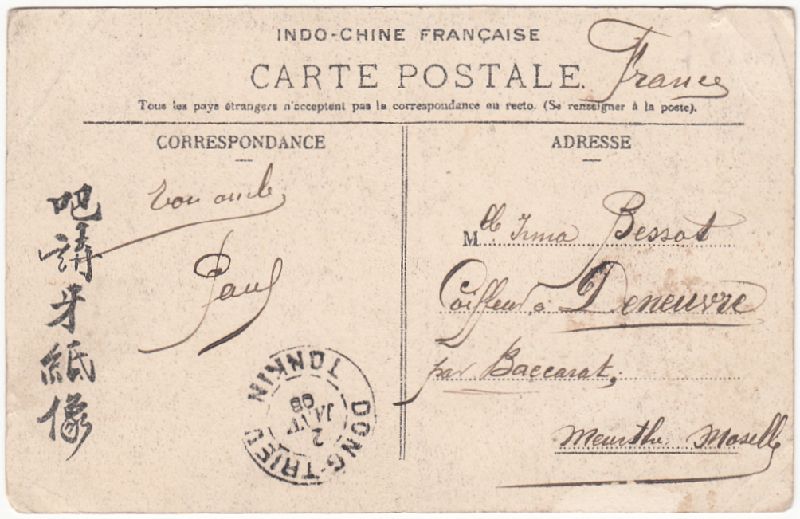 INDO-CHINE FRANÇAISE
CARTE POSTALE.
France
Tous les pays étrangers n'acceptent pas la correspondance au recto. (Se renseigner à la poste).
CORRESPONDANCE
Ton oncle
Paul
吧講牙紙像
ADRESSE
Mlle Irma Bessot
Coiffeur à Deneuvre
par Baccarat,
Meurthe Moselle
DONG-TRIEU
TONKIN
2
JANV
08